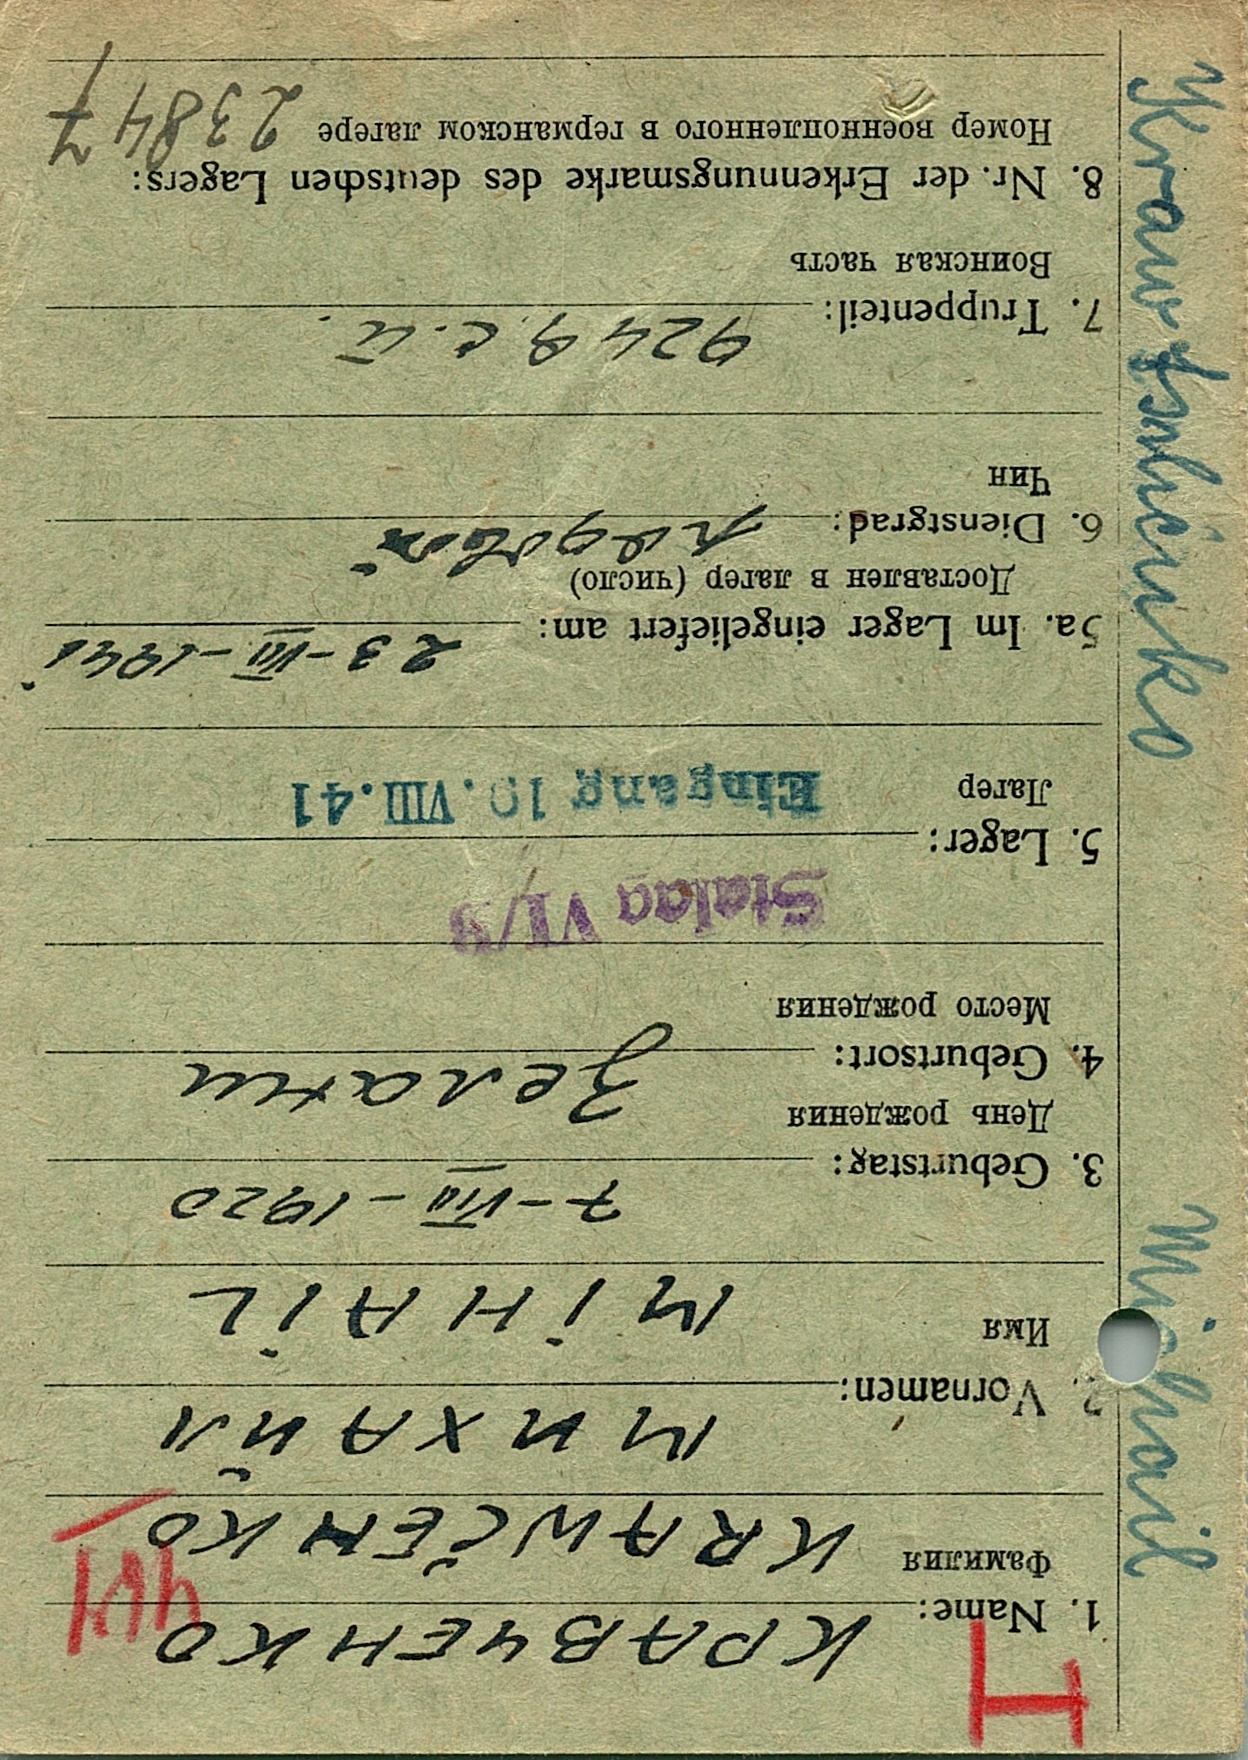 I
1. Name: КРАВЧЕНКО
Фамилия KRAWČENKO
2. Vornamen: МИХАЙЛ
Имя MIHAIL
3. Geburtstag: 7-VIII-1920
День рождения
4. Geburtsort:
Место рождения
Stalag VI/B
5. Lager:
Лагер Eingang 10.VIII.41
5a. Im Lager eingeliefert am: 23-VII-1941
Доставлен в лагер (число)
6. Dienstgrad: рядовой
Чин
7. Truppenteil: 924
Воинская часть
8. Nr. der Erkennungsmarke des deutschen Lagers:
Номер военнопленного в германском лагере 23847
Krawtschenko Michail